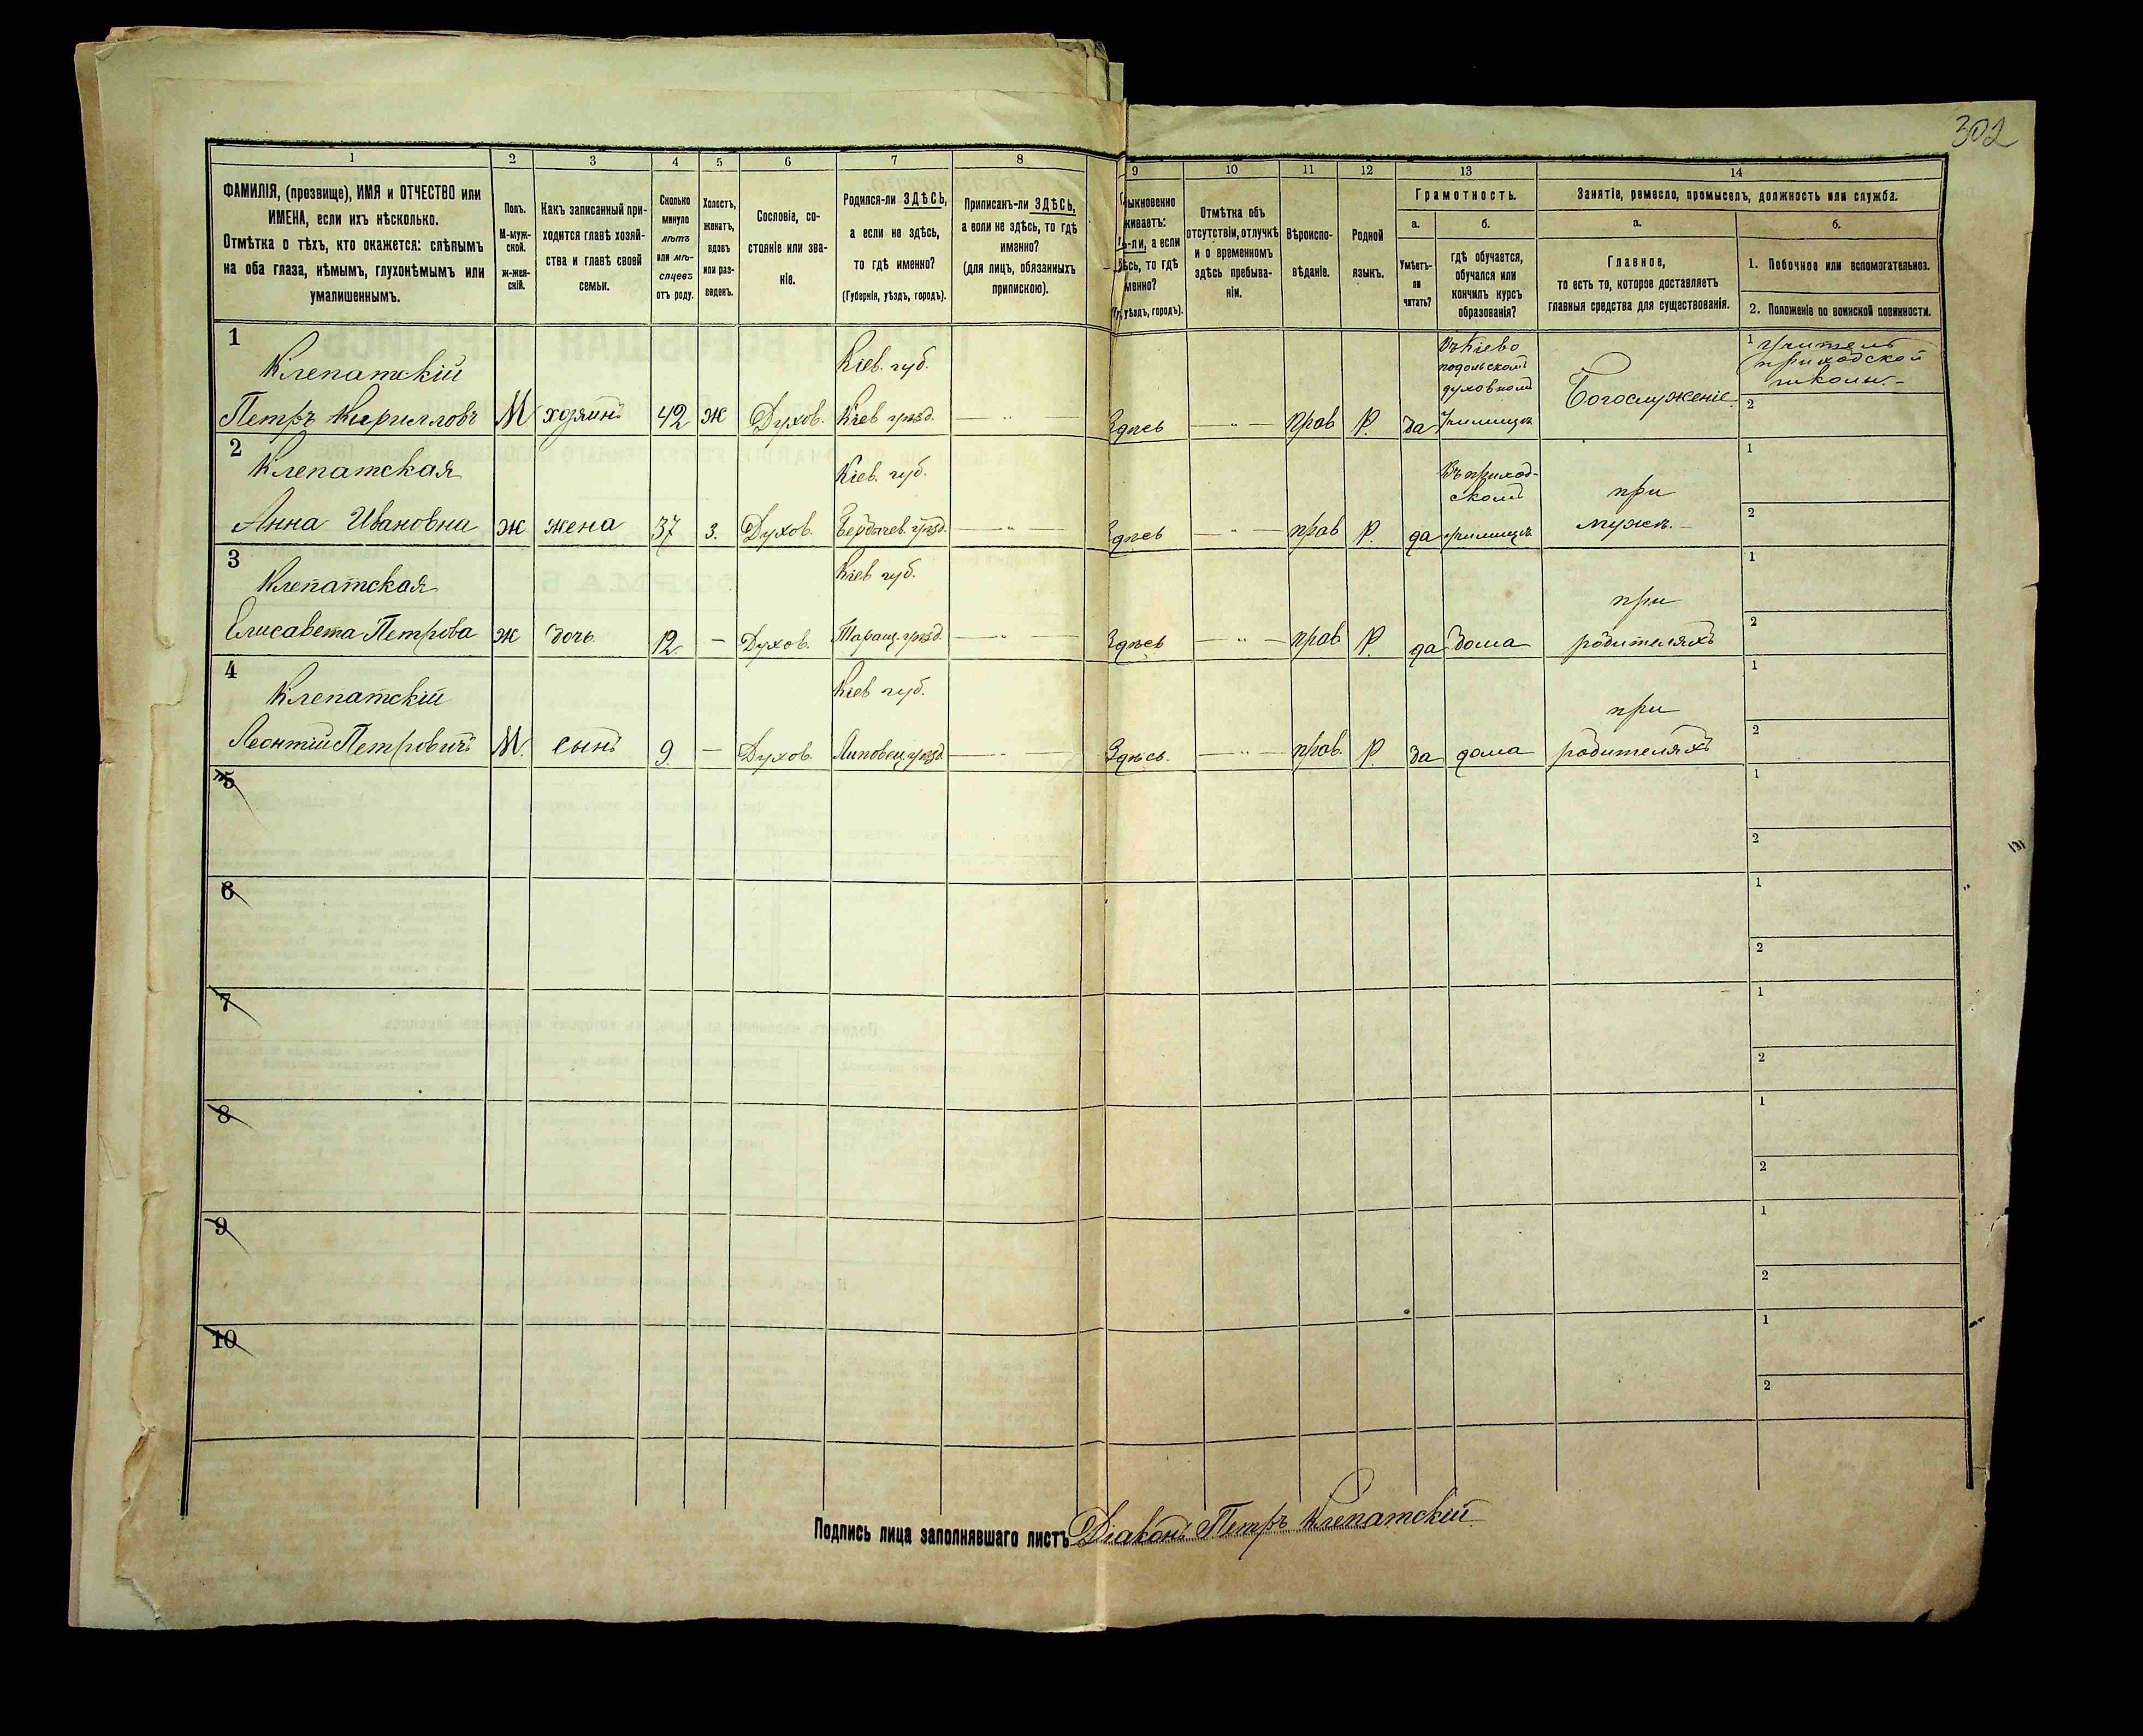 302
1 2 3 4 5 6 7 8 9 10 11 12 13 14
ФАМИЛІЯ, (прозвище), ИМЯ и ОТЧЕСТВО или
ИМЕНА, если ихъ нѣсколько.
Отмѣтка о тѣхъ, кто окажется: слѣпымъ
на оба глаза, нѣмымъ, глухонѣмымъ или
умалишеннымъ.
Полъ.
М-муж-
ской.
ж-жен-
скій.
Какъ записанный при-
ходится главѣ хозяй-
ства и главѣ своей
семьи.
Сколько
минуло
лѣтъ
или мѣ-
сяцевъ
отъ роду.
Холостъ,
женатъ,
вдовъ
или раз-
веденъ.
Сословіе, со-
стояніе или зва-
ніе.
Родился-ли ЗДѢСЬ,
а если не здѣсь,
то гдѣ именно?
(Губернія, уѣздъ, городъ).
Приписанъ-ли ЗДѢСЬ,
а если не здѣсь, то гдѣ
именно?
(для лицъ, обязанныхъ
припискою).
ыкновенно
живаетъ:
ь-ли, а если
ѣсь, то гдѣ
менно?
уѣздъ, городъ).
Отмѣтка объ
отсутствіи, отлучкѣ
и о временномъ
здѣсь пребыва-
ніи.
Вѣроиспо-
вѣданіе.
Родной
языкъ.
Грамотность.
а.
Умѣетъ-
ли
читать?
б.
гдѣ обучается,
обучался или
кончилъ курсъ
образованія?
Занятіе, ремесло, промыселъ, должность или служба.
а.
Главное,
то есть то, которое доставляетъ
главныя средства для существованія.
б.
1. Побочное или вспомогательное.
2. Положеніе по воинской повинности.
1
Клепатскій
Петръ Кирилловъ
М
хозяинъ
42
ж
Духов.
Кіев. губ.
Кіев уѣзд.
— " —
Здѣсь
— " —
прав
Р.
да
Въ Кіево
подольскомъ
духовномъ
училищѣ
Богослуженіе
1 учитель
приходской
школы.-
2
2
Клепатская
Анна Ивановна
ж
жена
37
з.
Духов.
Кіев. губ.
Бердичев. уѣзд.
— " —
Здѣсь
— " —
прав
Р.
да
Въ приход-
скомъ
училищѣ
при
мужѣ.-
1
2
3
Клепатская
Елисавета Петрова
ж
дочь
12.
—
Духов.
Кіев губ.
Таращ. уѣзд.
— " —
Здѣсь
— " —
прав
Р.
да
дома
при
родителяхъ
1
2
4
Клепатскій
Леонтій Петровичъ
М.
сынъ
9
—
Духов.
Кіев губ.
Липовец. уѣзд.
— " —
Здѣсь.
— " —
прав.
Р.
да
дома
при
родителяхъ
1
2
5
1
2
6
1
2
7
1
2
8
1
2
9
1
2
10
1
2
Подпись лица заполнявшаго листъ Діаконъ Петръ Клепатскій